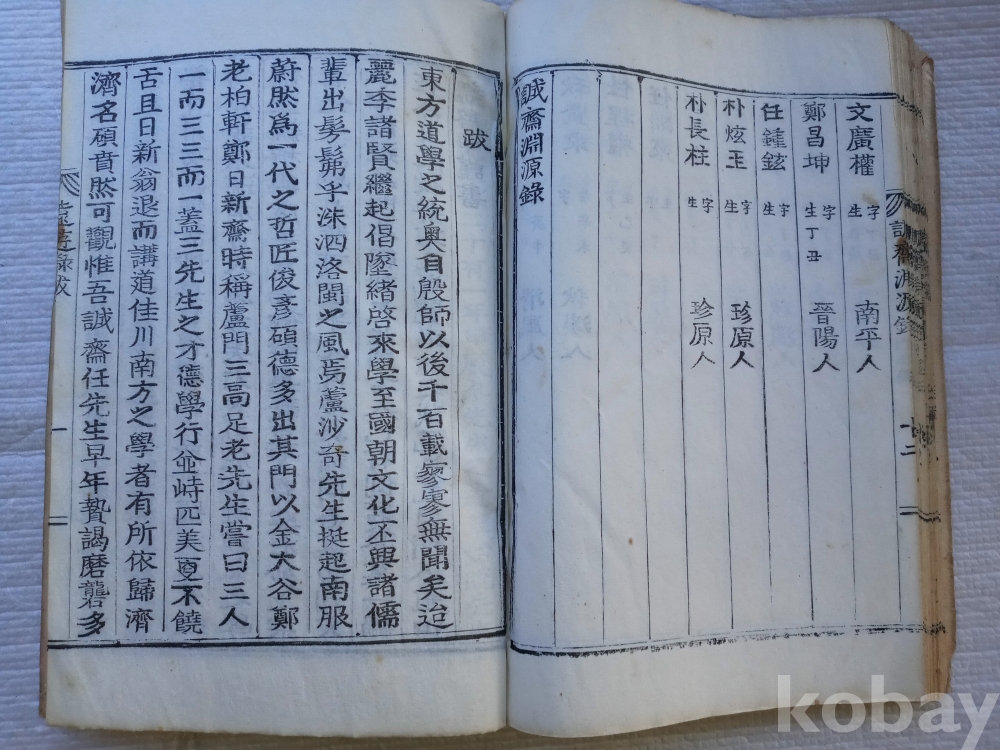 文廣權 字 生 南平人
鄭昌坤 字 生丁丑 晉陽人
任鍾鉉 字 生
朴炫玉 字 生 珍原人
朴長柱 字 生 珍原人
誠齋淵源錄
誠齋淵源錄 十二
跋
東方道學之統奧自殷師以後千百載寥寥無聞矣迨
麗李諸賢繼起倡墜緖啓來學至國朝文化丕興諸儒
輩出髣髴乎洙泗洛閩之風焉蘆沙奇先生挺起南服
蔚然爲一代之哲匠俊彦碩德多出其門以金大谷鄭
老柏軒鄭日新齋時稱蘆門三高足老先生嘗曰三人
一而三三而一蓋三先生之才德學行並峙匹美更不饒
舌且日新翁退而講道佳川南方之學者有所依歸濟
濟名碩賁然可觀惟吾誠齋任先生早年贄謁磨礱多
錄跋 一
kobay